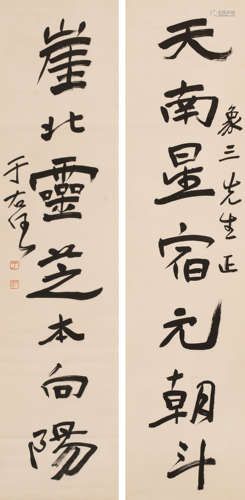 天南星宿元朝斗
象三先生正
崖北靈芝本向陽
于右任